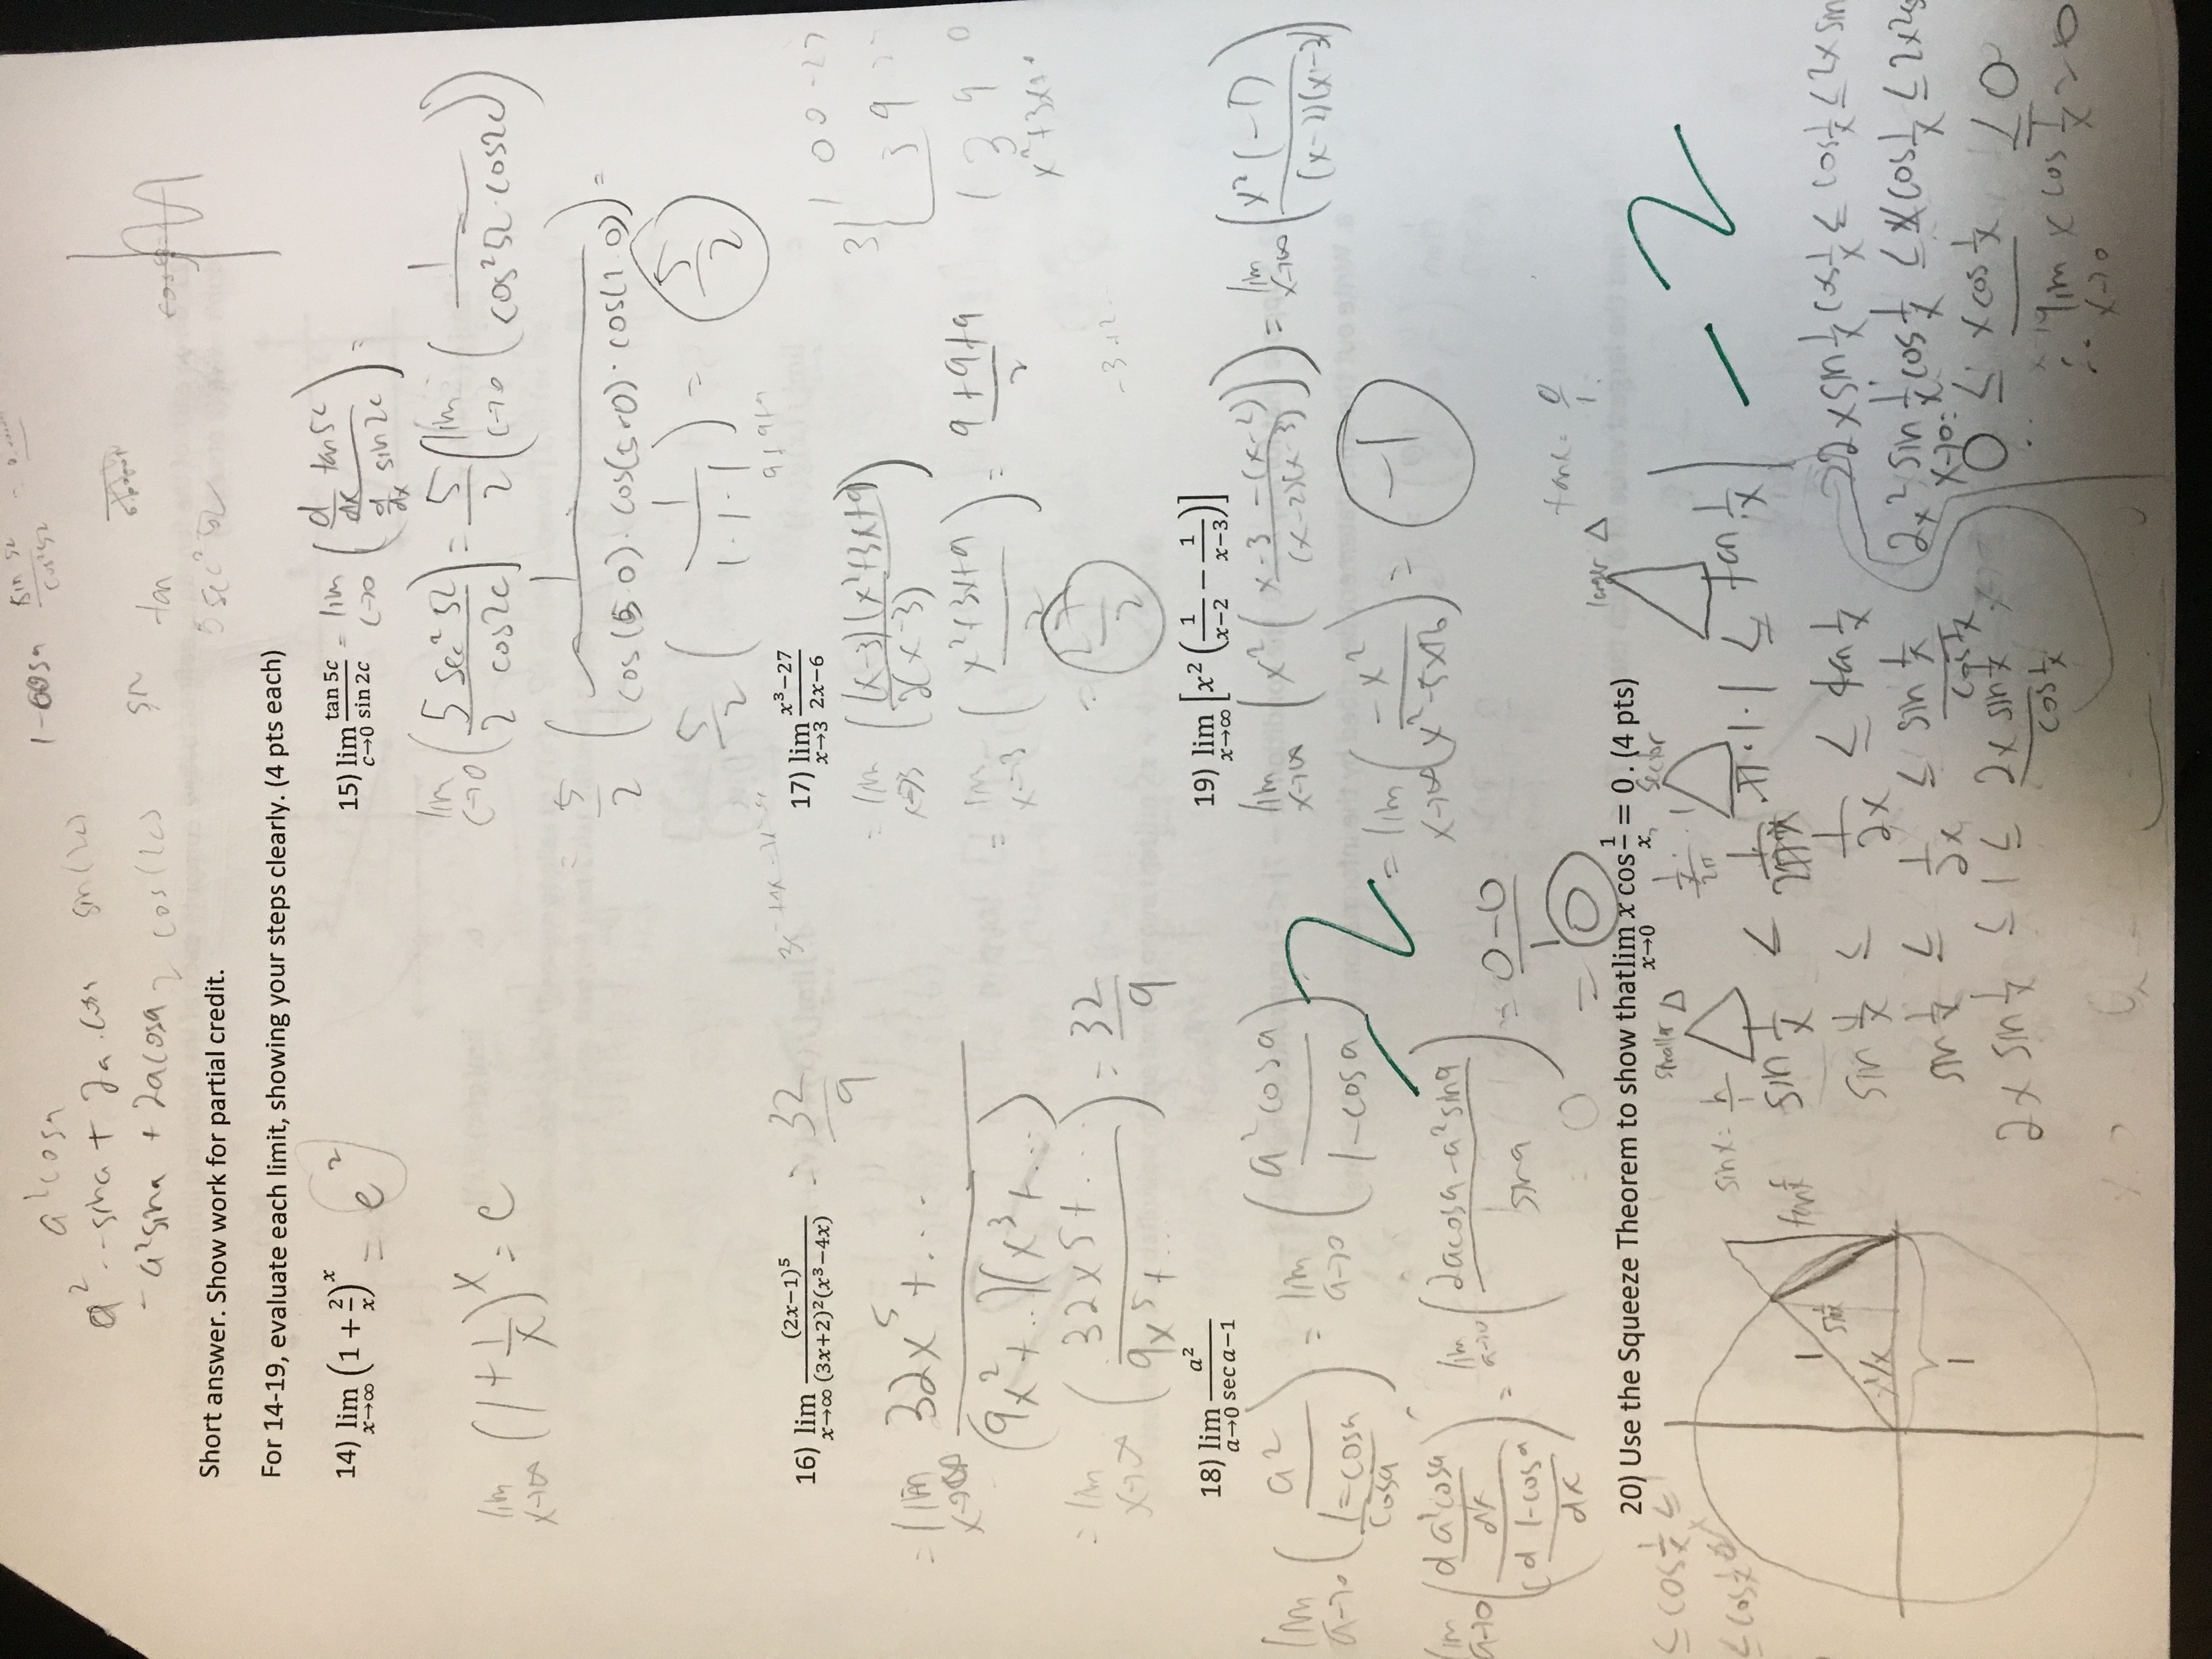 a²cosa
a² · -sina + 2a · cosa
-a²sina + 2acosa
sin(2c)
2 cos(2c)
1-cosa
tan
Short answer. Show work for partial credit.
For 14-19, evaluate each limit, showing your steps clearly. (4 pts each)
14) lim x→∞ (1 + 2/x)^x = e²
lim x→∞ (1 + 1/x)^x = e
15) lim c→0 tan 5c / sin 2c = lim c→0 (d/dx tan5c / d/dx sin2c) =
lim c→0 (5 sec² 5c / 2 cos2c) = 5/2 (lim c→0 (1 / cos²5c · cos2c))
= 5/2 (1 / cos(5·0) · cos(5·0) · cos(2·0)) =
5/2 (1 / 1·1·1) = 5/2
16) lim x→∞ (2x−1)⁵ / (3x+2)²(x³−4x) = 32/9
= lim x→∞ 32x⁵ + ... / (9x² + ..)(x³ + ...)
= lim x→∞ (32x⁵ + ... / 9x⁵ + ...) = 32/9
17) lim x→3 x³−27 / 2x−6
9+9+9
= lim x→3 ((x-3)(x²+3x+9) / 2(x-3))
= lim x→3 (x²+3x+9 / 2) = 9+9+9 / 2
= 27/2
3| 1 0 0 -27
3 9 27
1 3 9 0
18) lim a→0 a² / sec a−1
lim a→0 (a² / 1-cosa / cosa) = lim a→0 (a²cosa / 1-cosa)
-2
lim a→0 (d a²cosa / dx / d 1-cosa / dx) = lim a→0 (2acosa-a²sina / sina) = 0-0 / 1
= 0 = 0
19) lim x→∞ [x² (1/x−2 − 1/x−3)]
lim x→∞ (x² (x-3 -(x-2) / (x-2)(x-3))) = lim x→∞ (x²(-1) / (x-2)(x-3))
= lim x→∞ (-x² / x²-5x+6) = -1
20) Use the Squeeze Theorem to show thatlim x→0 x cos 1/x = 0. (4 pts)
tanx = 0/1
smaller Δ
sector
larger Δ
-2
≤ cos 1/x ≤
≤ cos 1/x
sinx = h/1
1
1/x
tan 1/x
1
sin 1/x ≤ π·1·1 ≤ tan 1/x
sin 1/x ≤ 1/2x ≤ tan 1/x
sin 1/x ≤ 1/2x ≤ sin 1/x / cos 1/x
2x sin 1/x ≤ 1 ≤ 2x sin 1/x / cos 1/x
2x sin 1/x cos 1/x ≤ cos 1/x ≤ 2x sin
2x² sin 1/x cos 1/x ≤ x cos 1/x ≤ 2x²
x→0:
0 ≤ x cos 1/x ≤ 0
∴ lim x→0 x cos 1/x = 0